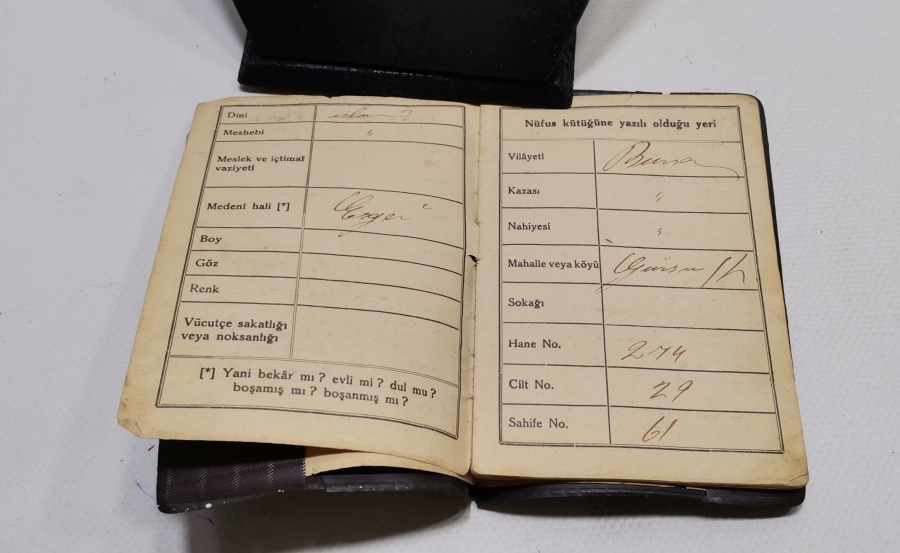 Dinî islam
Mezhebi "
Meslek ve içtimaî
vaziyeti
Medenî hali [*]
Boy
Göz
Renk
Vücutçe sakatlığı
veya noksanlığı
[*] Yani bekâr mı? evli mi? dul mu?
boşamış mı? boşanmış mı?
Nüfus kütüğüne yazılı olduğu yeri
Vilâyeti Bursa
Kazası "
Nahiyesi "
Mahalle veya köyü Gürsu
Sokağı
Hane No. 274
Cilt No. 29
Sahife No. 61